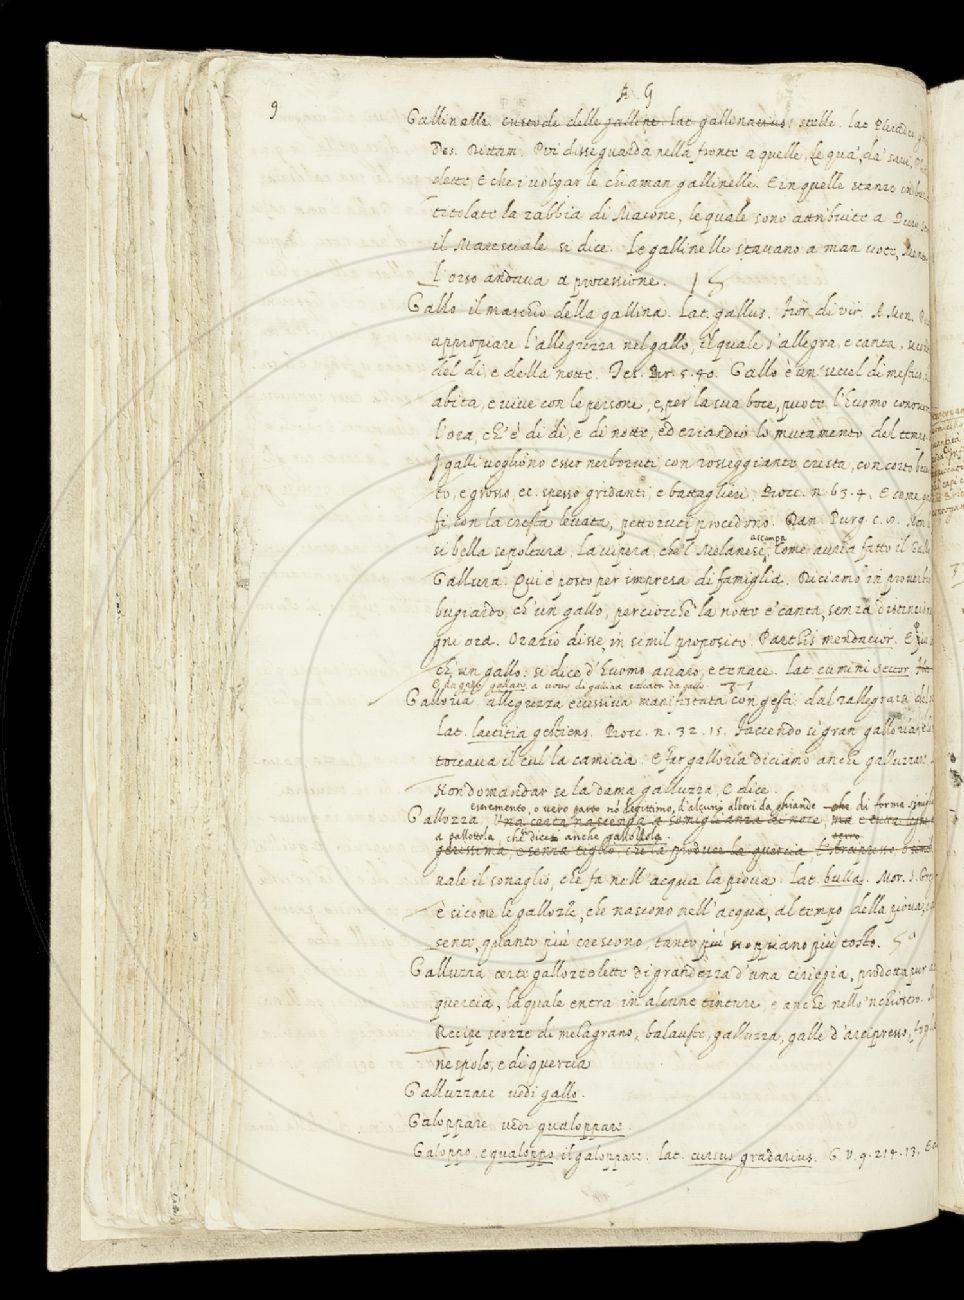 9
A G
Gallinelle custode delle galline lat. gallinarius: stelle. lat. Pleiades
Des. Dittam. Poi disse guarda nella fronte a quelle, Le qua' da' savi
dette, E che i volgar le chiaman gallinelle. E in quelle stanze
titolate la rabbia di Macone, le quale sono attribuite a
il Maresciale si dice. Le gallinelle stavano a man vote,
L'orso andava a processione.
Gallo il maschio della gallina. Lat. gallus. Fior. di vir. A Mon.
appropiare l'allegrezza nel gallo, il quale s'allegra, e canta,
del di, e della notte. Tes. Br. 5. 40. Gallo è un'uccel dimestico,
abita, e vive con le persone, e, per la sua boce, puote l'huomo
l'ora, ch'è di dì, e di notte, ed eziandio lo mutamento del tempo.
I galli vogliono esser nerboruti con rosseggiante cresta, con corto
to, e grosso, ec. spesso gridanti, e battaglieri. Bocc. n. 63. 4. E come
li, con la cresta levata, pettoruti procedono. Dan. Purg. c. 8. Non
si bella sepoltura, La vipera, che 'l Melanese accampa, Come avria fatto il Gallo
Gallura. Qui è posto per impresa di famiglia. Diciamo in proverbio
bugiardo, ch'un gallo, perciocchè la notte e' canta, senza
gni ora. Orazio disse, in simil proposito. Parthis mendacior. E
ch'un gallo: si dice d'huomo avaro, e tenace. Lat. cumini sector
E da gallo gallato a uovo di gallina calcata da gallo.
Galloria allegrezza eccessiva manifestata con gesti: dal rallegrarsi
Lat. laetitia gestiens. Bocc. n. 32. 15. Faccendo sì gran galloria,
toccava il cul la camicia. E far galloria diciamo anche galluzzare.
Non domandar se la dama galluzza, E dice.
escremento, o vero parto nō legittimo, d'alcuni alberi da ghiande che di forma simile
Gallozza, una certa nascenza a somiglianza di noce, ma e tutta
a pallottola, che dicesi anche gallozzola.
gerissima e senza tiglio, che la produce la quercia
nale il sonaglio, che fa nell'acqua la piova. Lat. bulla. Mor. S. Greg.
è sicome le gallozze, che nascono nell'acqua, al tempo della piova,
sente, quanto più crescono, tanto più scoppiano più tosto.
Galluzza certe gallozzolette di grandezza d'una ciriegia, prodotta pur
quercia, la quale entra in alcune tinture, e anche nello 'nchiostro.
Recipe scorze di melagrano, balauste, galluzza, galle d'arcipresso,
nespolo, e di quercia
Galluzzare vedi gallo.
Galoppare vedi gualoppare.
Galoppo, e gualoppo il galoppare. lat. cursus gradarius. G. V. 9. 214. 13.